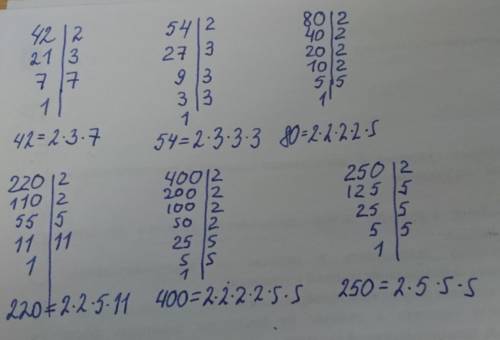 42 | 2
21 | 3
7 | 7
1 |
42 = 2·3·7
54 | 2
27 | 3
9 | 3
3 | 3
1
54 = 2·3·3·3
80 | 2
40 | 2
20 | 2
10 | 2
5 | 5
1 |
80 = 2·2·2·2·5
220 | 2
110 | 2
55 | 5
11 | 11
1 |
220 = 2·2·5·11
400 | 2
200 | 2
100 | 2
50 | 2
25 | 5
5 | 5
1 |
400 = 2·2·2·2·5·5
250 | 2
125 | 5
25 | 5
5 | 5
1 |
250 = 2·5·5·5